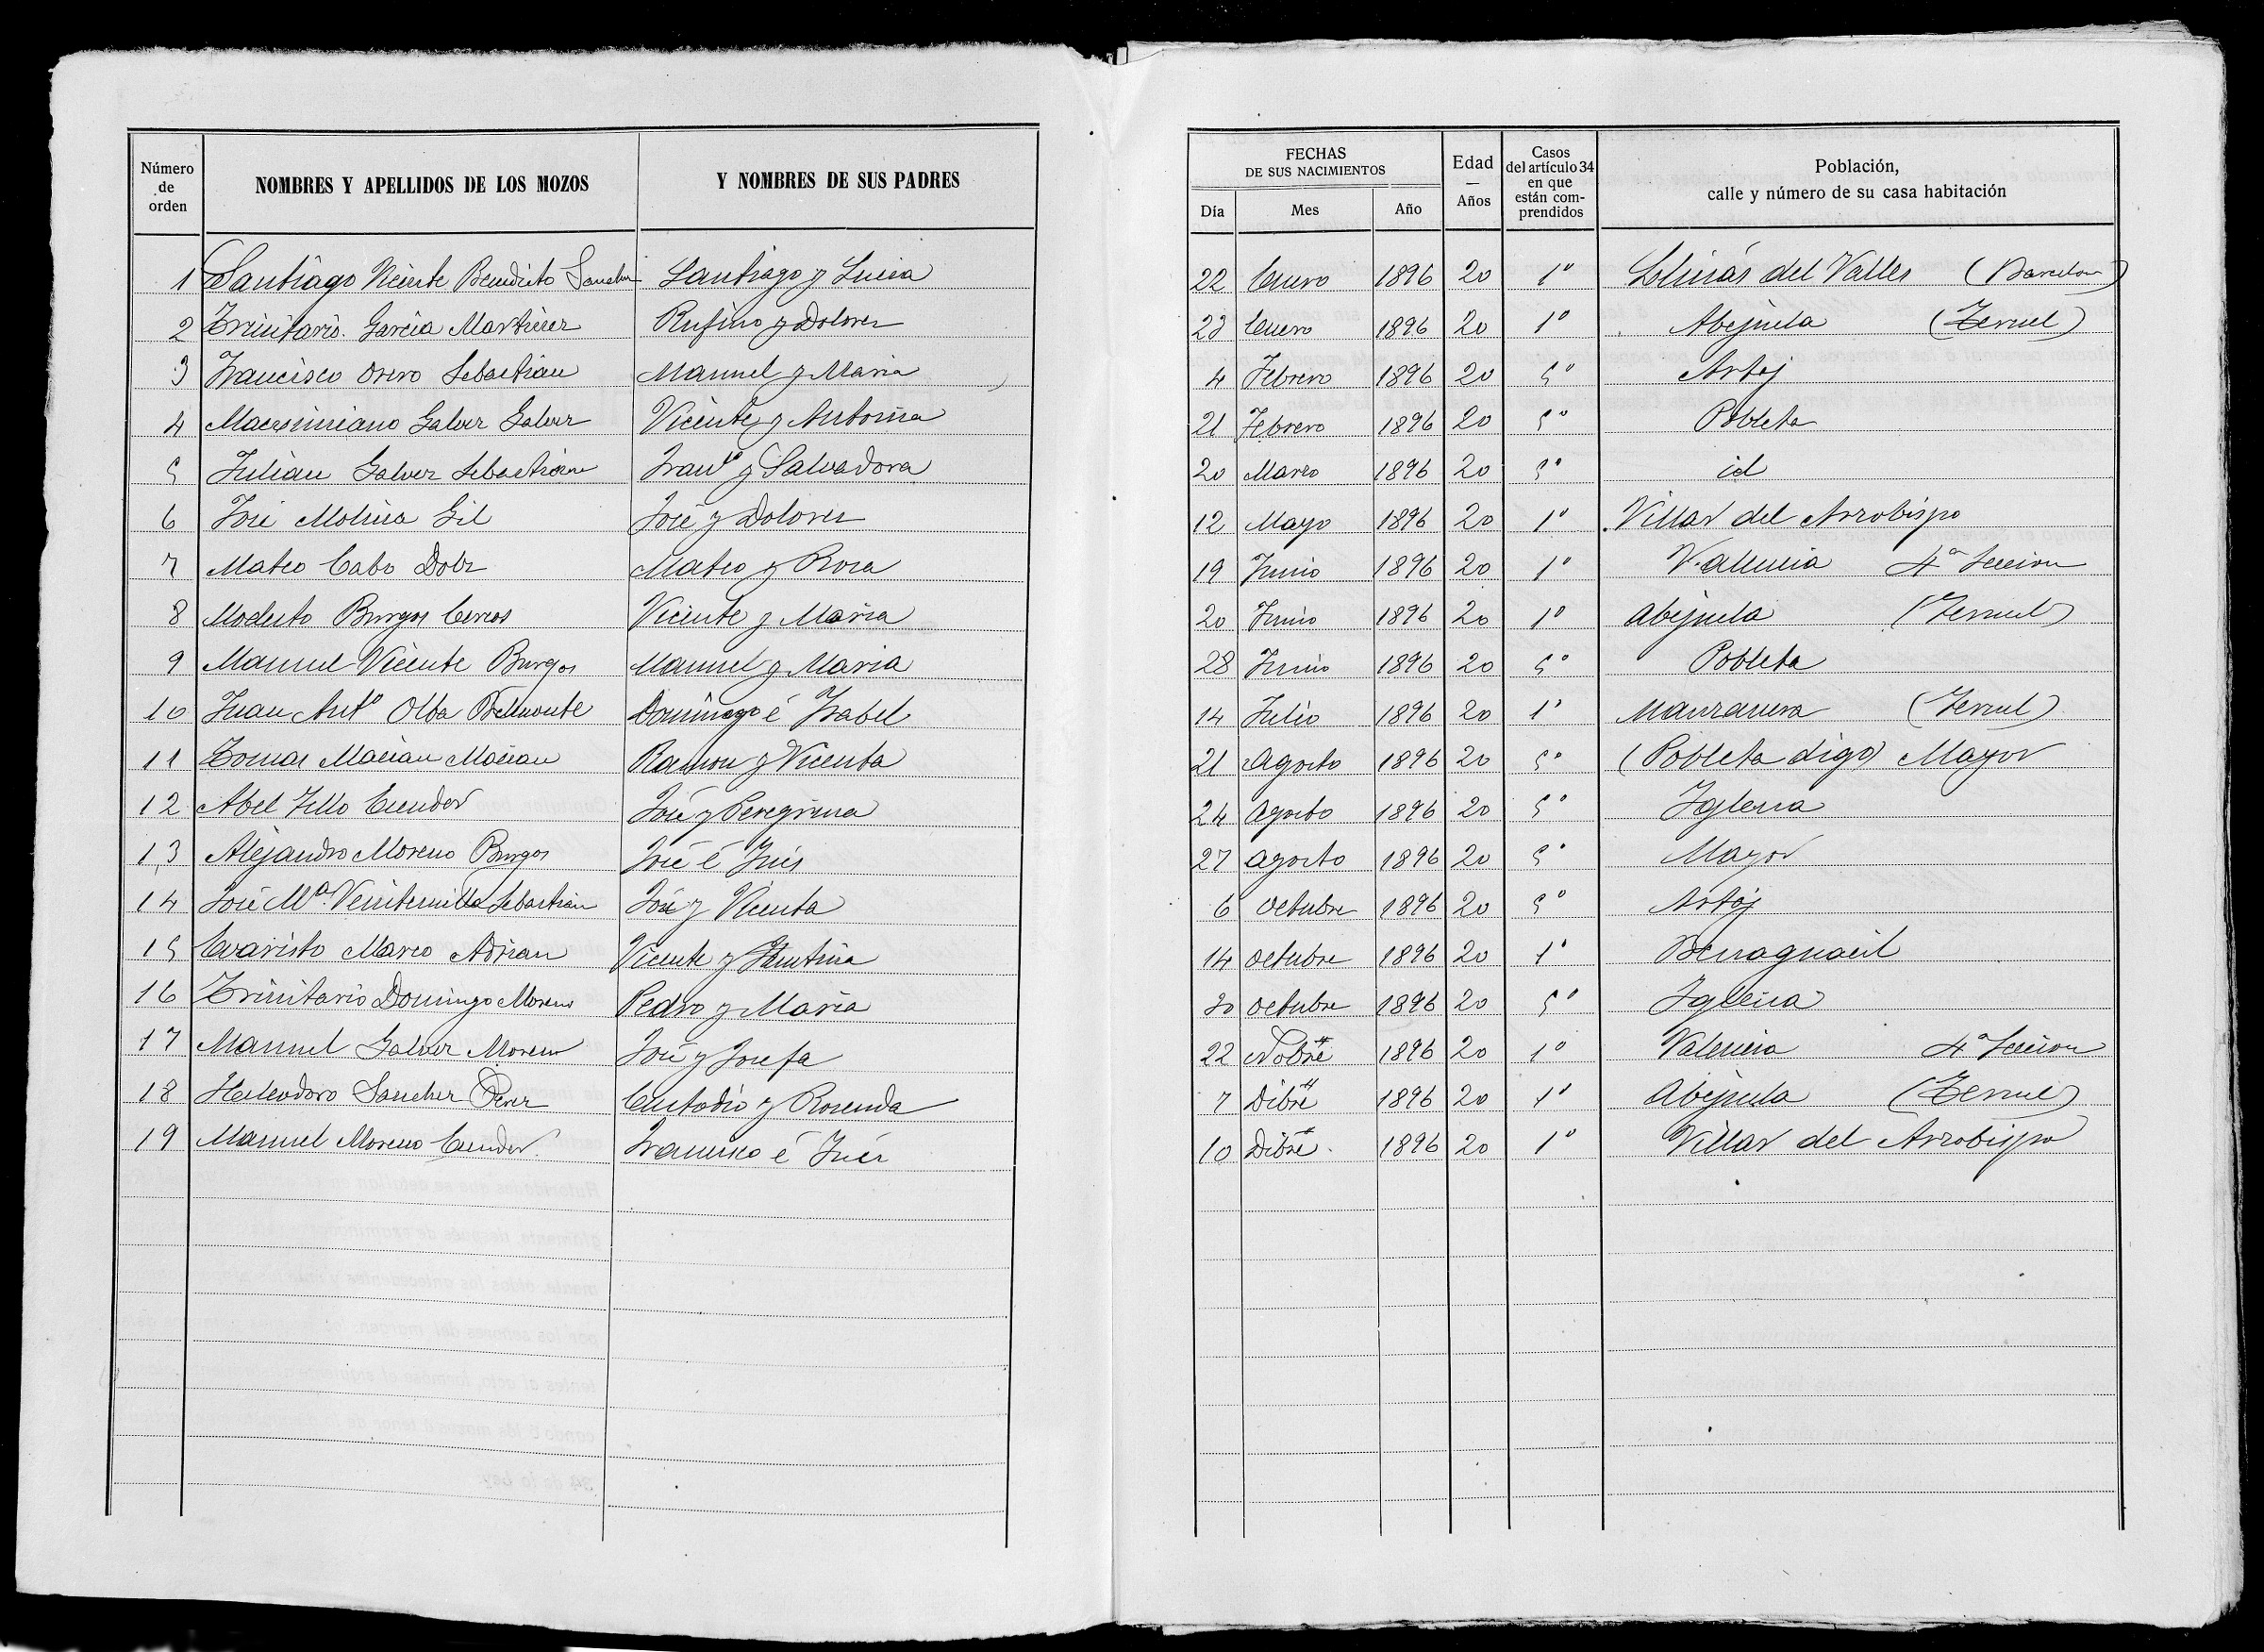 Número de orden | NOMBRES Y APELLIDOS DE LOS MOZOS | Y NOMBRES DE SUS PADRES | FECHAS DE SUS NACIMIENTOS | Edad — Años | Casos del artículo 34 en que están comprendidos | Población, calle y número de su casa habitación
Día | Mes | Año
1 Santiago Vicente Benedicto Sanchez Santiago y Lucia 22 Enero 1896 20 1º Llinás del Valles (Barcelona)
2 Trinitario Garcia Martinez Rufino y Dolores 23 Enero 1896 20 1º Abejuela (Teruel)
3 Francisco Orero Sebastian Manuel y Maria 4 Febrero 1896 20 5º Artaj
4 Macsiminiano Galvez Galvez Vicente y Antonia 21 Febrero 1896 20 5º Pobleta
5 Julian Galvez Sebastian Franco y Salvadora 20 Marzo 1896 20 5º id
6 José Molina Gil José y Dolores 12 Mayo 1896 20 1º Villar del Arzobispo
7 Mateo Cabo Dolz Mateo y Rosa 19 Junio 1896 20 1º Valencia 4ª Seccion
8 Modesto Burgos Cercos Vicente y Maria 20 Junio 1896 20 1º Abejuela (Teruel)
9 Manuel Vicente Burgos Manuel y Maria 28 Junio 1896 20 5º Pobleta
10 Juan Antº Olba Belmonte Domingo é Isabel 14 Julio 1896 20 1º Manzanera (Teruel)
11 Tomas Macian Macian Ramon y Vicenta 21 Agosto 1896 20 5º (Pobleta digo) Mayor
12 Abel Tello José y Peregrina 24 Agosto 1896 20 5º Iglesia
13 Alejandro Moreno Burgos José é Inés 27 Agosto 1896 20 5º Mayor
14 José Mª Veintemilla Sebastian José y Vicenta 6 Octubre 1896 20 5º Artaj
15 Evaristo Marco Adrian Vicente y 14 Octubre 1896 20 1º Benaguacil
16 Trinitario Domingo Moreno Pedro y Maria 30 Octubre 1896 20 5º Iglesia
17 Manuel Galvez Moreno José y Josefa 22 Nobre 1896 20 1º Valencia 4ª Seccion
18 Heleodoro Sanchez Perez Custodio y Rosenda 7 Dibre 1896 20 1º Abejuela (Teruel)
19 Manuel Moreno Francisco é Inés 10 Dibre 1896 20 1º Villar del Arzobispo